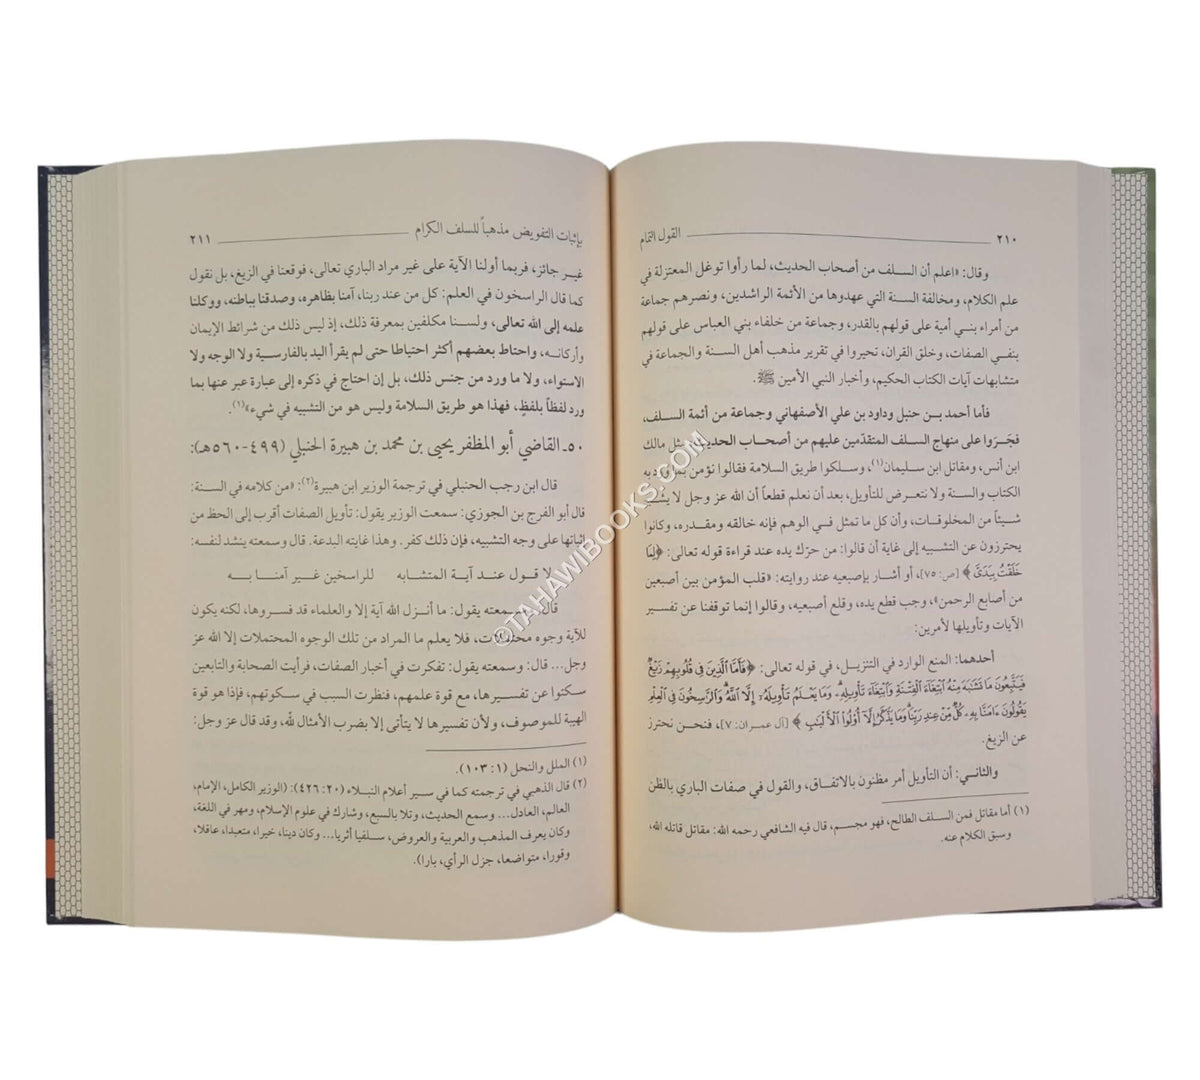 ٢١٠ القول التمام
وقال: «اعلم أن السلف من أصحاب الحديث، لما رأوا توغل المعتزلة في
علم الكلام، ومخالفة السنة التي عهدوها من الأئمة الراشدين، ونصرهم جماعة
من أمراء بني أمية على قولهم بالقدر، وجماعة من خلفاء بني العباس على قولهم
بنفي الصفات، وخلق القران، تحيروا في تقرير مذهب أهل السنة والجماعة في
متشابهات آيات الكتاب الحكيم، وأخبار النبي الأمين ﷺ.
فأما أحمد بن حنبل وداود بن علي الأصفهاني وجماعة من أئمة السلف،
فجَرَوا على منهاج السلف المتقدّمين عليهم من أصحاب الحديث مثل مالك
ابن أنس، ومقاتل ابن سليمان(١)، وسلكوا طريق السلامة فقالوا نؤمن بما ورد به
الكتاب والسنة ولا نتعرض للتأويل، بعد أن نعلم قطعاً أن الله عز وجل لا يشبه
شيئاً من المخلوقات، وأن كل ما تمثل في الوهم فإنه خالقه ومقدره، وكانوا
يحترزون عن التشبيه إلى غاية أن قالوا: من حرّك يده عند قراءة قوله تعالى: ﴿لِمَا
خَلَقْتُ بِيَدَىَّ﴾ [ص: ٧٥]، أو أشار بإصبعيه عند روايته: «قلب المؤمن بين أصبعين
من أصابع الرحمن»، وجب قطع يده، وقلع أصبعيه، وقالوا إنما توقفنا عن تفسير
الآيات وتأويلها لأمرين:
أحدهما: المنع الوارد في التنزيل، في قوله تعالى: ﴿فَأَمَّا الَّذِينَ فِي قُلُوبِهِمْ زَيْغٌ
فَيَتَّبِعُونَ مَا تَشَٰبَهَ مِنْهُ ابْتِغَآءَ الْفِتْنَةِ وَابْتِغَآءَ تَأْوِيلِهِۦ ۗ وَمَا يَعْلَمُ تَأْوِيلَهُۥٓ إِلَّا اللَّهُ ۗ وَالرَّٰسِخُونَ فِي الْعِلْمِ
يَقُولُونَ ءَامَنَّا بِهِۦ كُلٌّ مِّنْ عِندِ رَبِّنَا ۗ وَمَا يَذَّكَّرُ إِلَّآ أُو۟لُوا۟ الْأَلْبَٰبِ﴾ [آل عمران: ٧]، فنحن نحترز
عن الزيغ.
والثاني: أن التأويل أمر مظنون بالاتفاق، والقول في صفات الباري بالظن
(١) أما مقاتل فمن السلف الطالح، فهو مجسم، قال فيه الشافعي رحمه الله: مقاتل قاتله الله،
وسبق الكلام عنه.
بإثبات التفويض مذهباً للسلف الكرام ٢١١
غير جائز، فربما أولنا الآية على غير مراد الباري تعالى، فوقعنا في الزيغ، بل نقول
كما قال الراسخون في العلم: كل من عند ربنا، آمنا بظاهره، وصدقنا بباطنه، ووكلنا
علمه إلى الله تعالى، ولسنا مكلفين بمعرفة ذلك، إذ ليس ذلك من شرائط الإيمان
وأركانه، واحتاط بعضهم أكثر احتياطا حتى لم يقرأ اليد بالفارسية ولا الوجه ولا
الاستواء، ولا ما ورد من جنس ذلك، بل إن احتاج في ذكره إلى عبارة عبر عنها بما
ورد لفظاً بلفظٍ، فهذا هو طريق السلامة وليس هو من التشبيه في شيء»(١).
٥٠ـ القاضي أبو المظفر يحيى بن محمد بن هبيرة الحنبلي (٤٩٩-٥٦٠هـ):
قال ابن رجب الحنبلي في ترجمة الوزير ابن هبيرة(٢): «من كلامه في السنة:
قال أبو الفرج بن الجوزي: سمعت الوزير يقول: تأويل الصفات أقرب إلى الحظ من
إثباتها على وجه التشبيه، فإن ذلك كفر. وهذا غايته البدعة. قال وسمعته ينشد لنفسه:
لا قول عند آية المتشابه للراسخين غير آمنا به
قال: وسمعته يقول: ما أنزل الله آية إلا والعلماء قد فسروها، لكنه يكون
للآية وجوه محتملات، فلا يعلم ما المراد من تلك الوجوه المحتملات إلا الله عز
وجل... قال: وسمعته يقول: تفكرت في أخبار الصفات، فرأيت الصحابة والتابعين
سكتوا عن تفسيرها، مع قوة علمهم، فنظرت السبب في سكوتهم، فإذا هو قوة
الهيبة للموصوف، ولأن تفسيرها لا يتأتى إلا بضرب الأمثال لله، وقد قال عز وجل:
(١) الملل والنحل (١: ١٠٣).
(٢) قال الذهبي في ترجمته كما في سير أعلام النبلاء (٢٠: ٤٢٦): (الوزير الكامل، الإمام،
العالم، العادل... وسمع الحديث، وتلا بالسبع، وشارك في علوم الإسلام، ومهر في اللغة،
وكان يعرف المذهب والعربية والعروض، سلفيا أثريا... وكان دينا، خيرا، متعبدا، عاقلا،
وقورا، متواضعا، جزل الرأي، بارا).
©TAHAWIBOOKS.COM